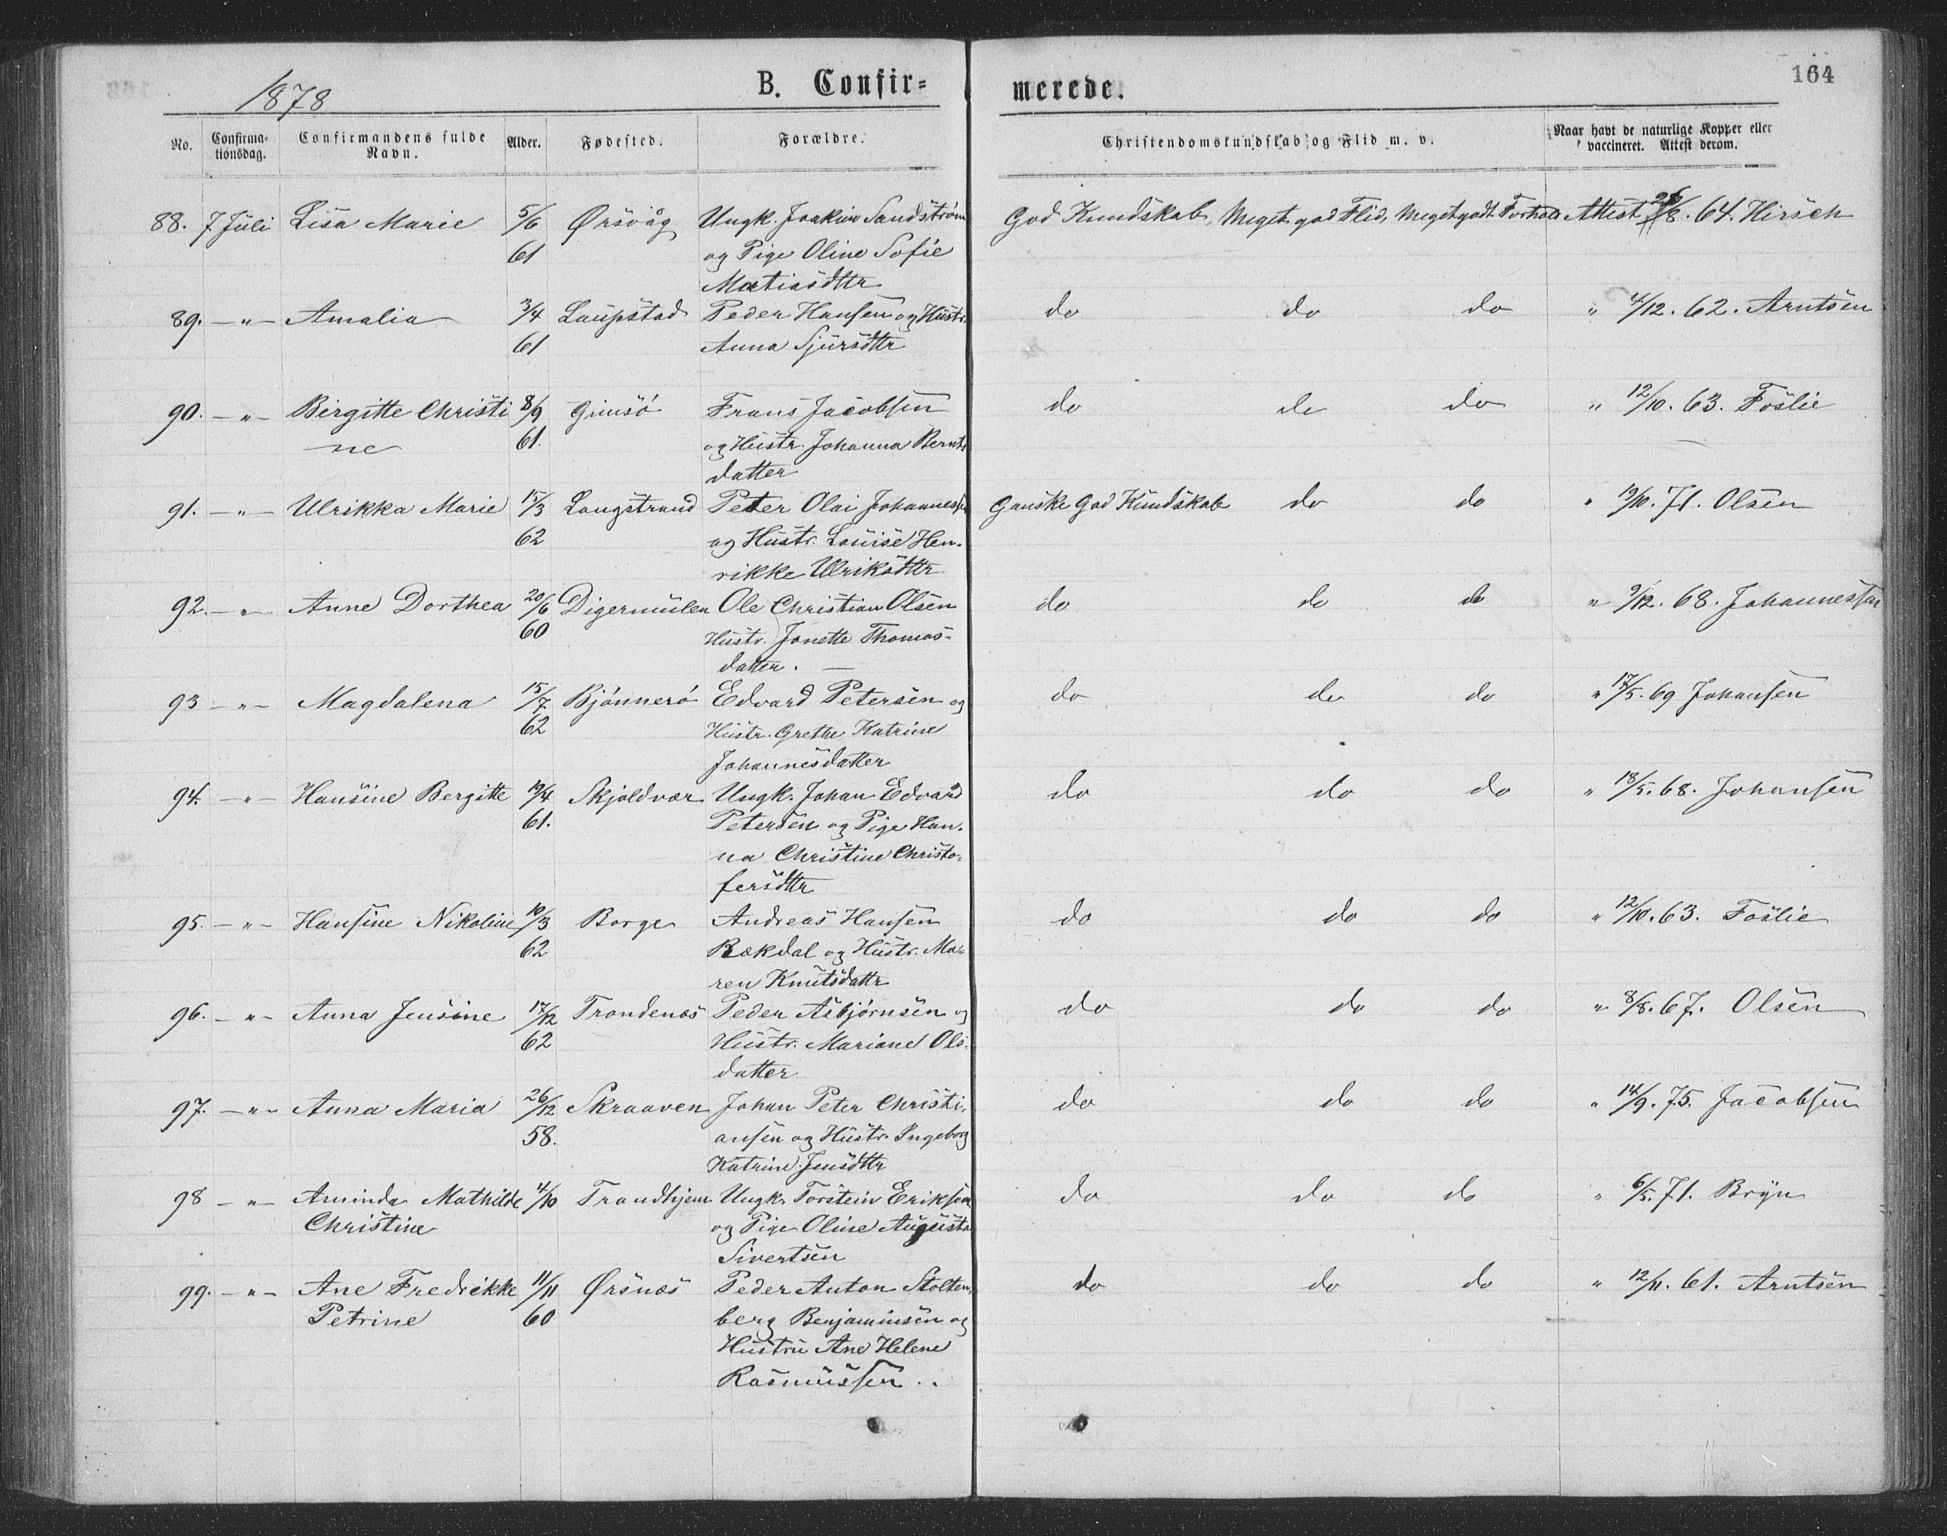 1878
B. Confir-
merede.
164
No.
Confirma-
tionsdag.
Confirmandens fulde
Navn.
Alder.
Fødested.
Forældre.
Christendomskundskab og Flid m. v.
Naar havt de naturlige Kopper eller
vaccineret. Attest derom.
88. 7 Juli Lisa Marie 5/6 Ørsvåg Ungk. Joakim Sandstrøm God Kundskab, Meget god Flid, Meget godt Forhold Attest 26/8. 64. Hirsch
61 og Pige Oline Sofie
Matisdttr
89. — " — Amalia 3/4 Laupstad Peder Hansen og Hustr. do do do " 4/12. 62. Arntsen
61 Anna Sjursdttr
90. — " — Birgitte Christi 8/9 Gimsö Frans Jacobsen do do do " 12/10. 63. Foslie
ne 61. og Hustr. Johanna Bernts
datter
91. — " — Ulrikka Marie 15/3 Langstrand Peter Olai Johannessen Ganske God Kundskab do do " 19/10. 71. Olsen
62 og Hustr. Louise Hen-
rikke Ulriksdttr
92. — " — Anne Dorthea 20/6 Digermulen Ole Christian Olsen do do do " 9/12. 68. Johannessen
60 Hustr. Jonette Thomas-
datter. —
93 — " — Magdalena 15/7 Bjönnerö Edvard Petersen og do do do " 17/5. 69 Johansen
62 Hustr. Grethe Katrine
Johannesdatter
94. — " — Hansine Bergitte 19/4 Skjoldvær Ungk. Johan Edvard do do do " 18/5. 68. Johansen
61. Petersen og Pige Han-
na Christine Christo-
fersdttr
95. — " — Hansine Nikoline 10/3 Borge Andreas Hansen do do do " 12/10. 63. Foslie
62 Rækdal og Hustr. Ma-
ren Knutsdattr
96. — " — Anna Jensine 17/12 Trondenæs Peder Asbjørnsen og do do do " 8/8. 67. Olsen
62 Hustr. Mariane Ols-
datter
97. — " — Anna Maria 26/12 Skraaven Johan Peter Christi- do do do " 14/9. 75. Jacobsen
58. ansen og Hustr. Ingeborg
Katrine Jensdttr
98 — " — Aminda Mathilde 4/10 Trondhjem Ungk. Torstein Eriksen do do do " 6/5. 71. Bryn
Christine og Pige Oline Augusta
Sivertsen
99. — " — Ane Fredrikke 11/11 Ørsnæs Peder Anton Stolten- do do do " 12/11. 61. Arntsen
Petrine 60 berg Benjaminsen og
Hustru Ane Helene
Rasmussen ..